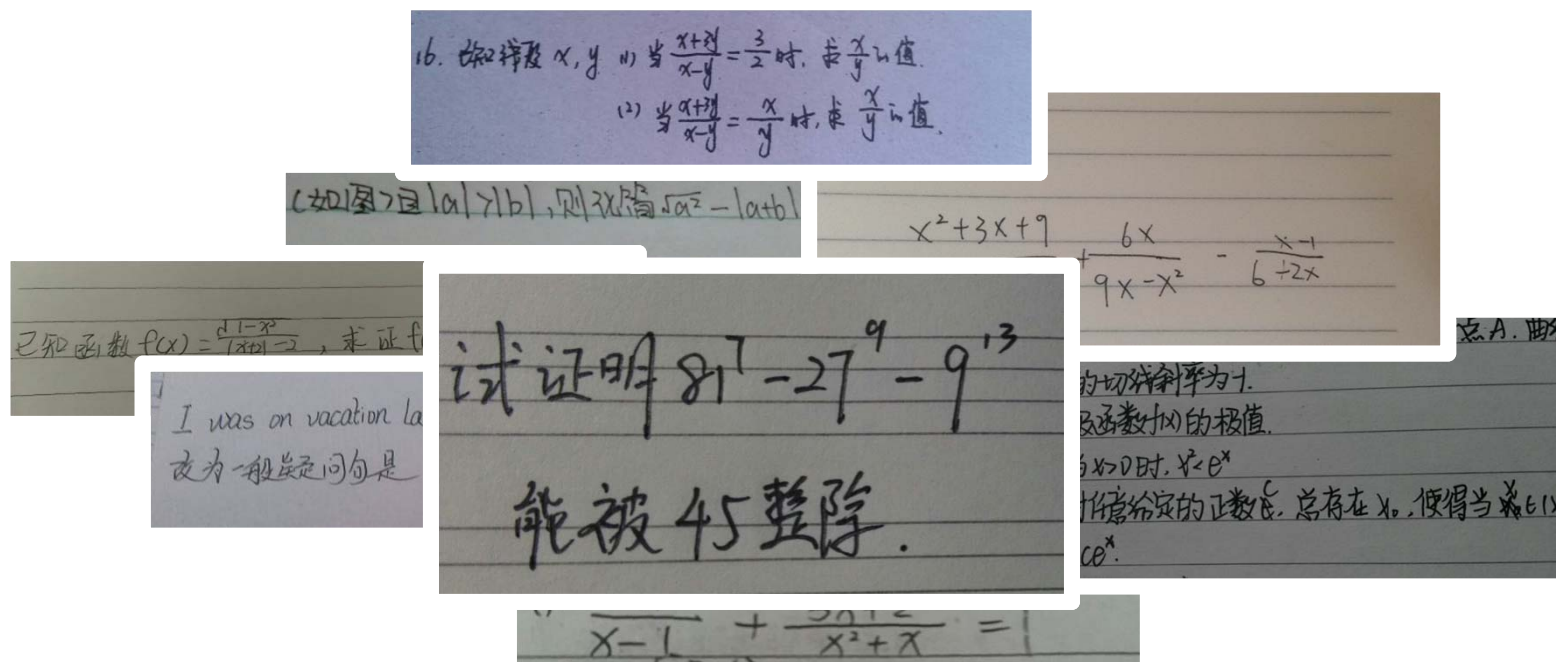 16. 已知线段 x, y (1) 当 \frac{x+3y}{x-y} = \frac{3}{2} 时, 求 \frac{x}{y} 的值.
(2) 当 \frac{x+3y}{x-y} = \frac{x}{y} 时, 求 \frac{x}{y} 的值.
(如图)且|a|>|b|,则 \sqrt{a^2} - |a+b|
x^2+3x+9
+ \frac{6x}{9x-x^2} - \frac{x-1}{6+2x}
已知函数 f(x) = \frac{\sqrt{1-x^2}}{|x+2|-2}, 求证 f
I was on vacation la
改为一般疑问句是
试证明 81^7 - 27^9 - 9^{13}
能被45整除.
点A.曲
的切线斜率为-1.
函数f(x)的极值.
x>0时, x^2<e^x
给定的正数c, 总存在x_0, 使得当x∈(
ce^x.
\frac{}{x-1} + \frac{}{x^2+x} =